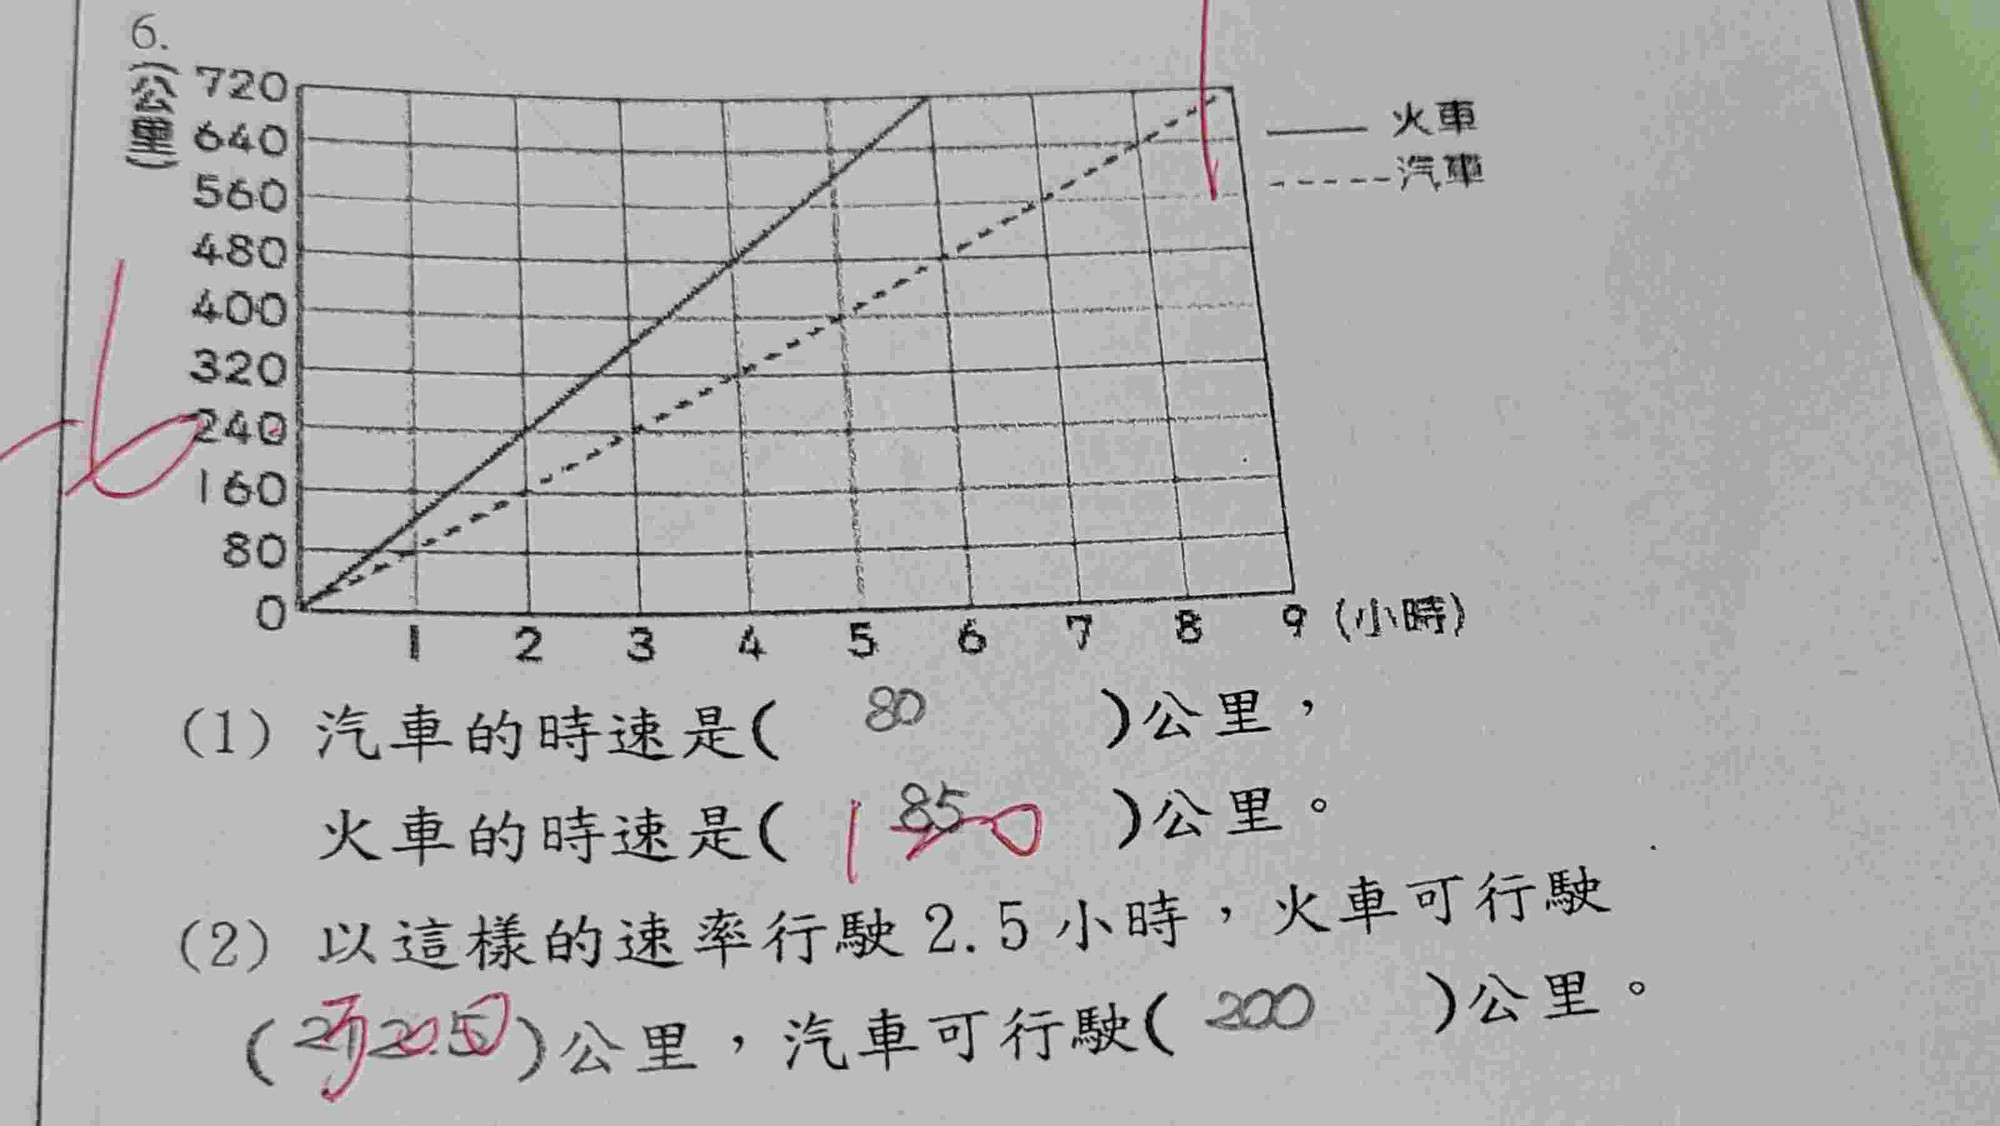 6.
(公里)
720
640
560
480
400
320
240
160
80
0
1 2 3 4 5 6 7 8 9 (小時)
火車
汽車
-6
(1) 汽車的時速是( 80 )公里，
火車的時速是( 85 120 )公里。
(2) 以這樣的速率行駛2.5小時，火車可行駛
( 300 )公里，汽車可行駛( 200 )公里。